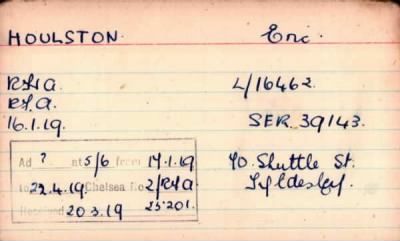 HOULSTON. Eric.
RHA. L/16462.
R.F.A.
16.1.19. SER. 39143.
Ad ? at 5/6 from 17.1.19 40. Shuttle St.
to 22.4.19 Chelsea No 2/RHA Tyldesley.
20.3.19 25201.